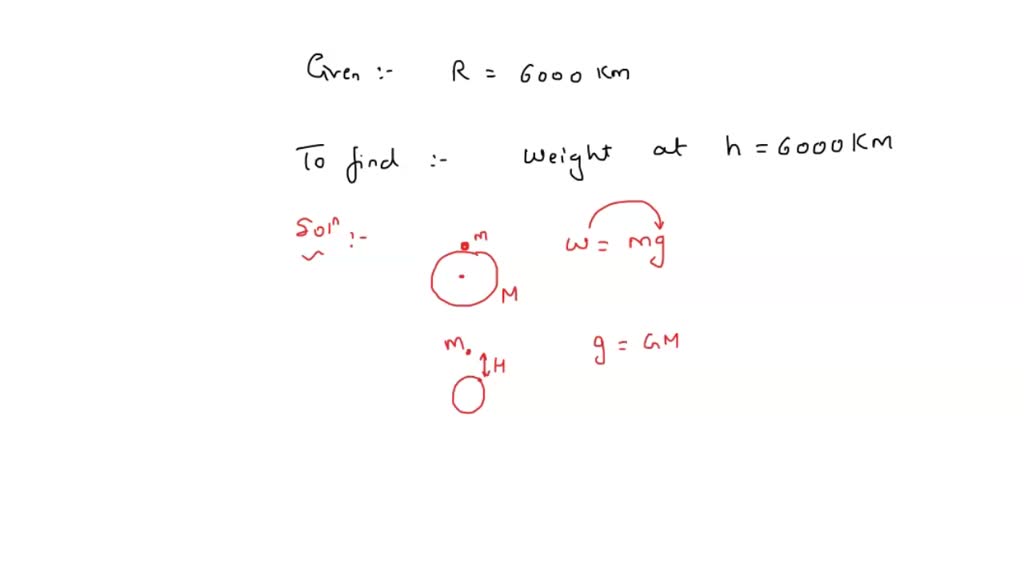 Given :- R = 6000 Km
To find :- weight at h = 6000 KM
Soln :-
m
M
w = mg
m
H
g = GM